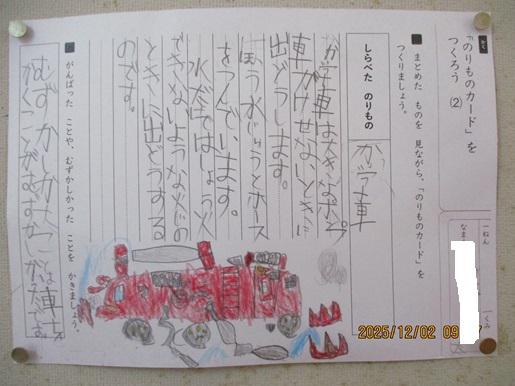 「のりものカード」を
つくろう (2)
一ねん 一くみ
なま
まとめた ものを 見ながら、「のりものカード」を
つくりましょう。
しらべた のりもの
か学車
か学車は大きなポンプ
車がけせないときに
出どうします。
ほう水じゅうとホース
をつんでいます。
水だけではしょう火
できないような火じの
ときに出どうする
のです。
がんばった ことや、むずかしかった ことを かきましょう。
むずかしかったことは車を
かくことがむずかしかったです。
2025/12/02 09